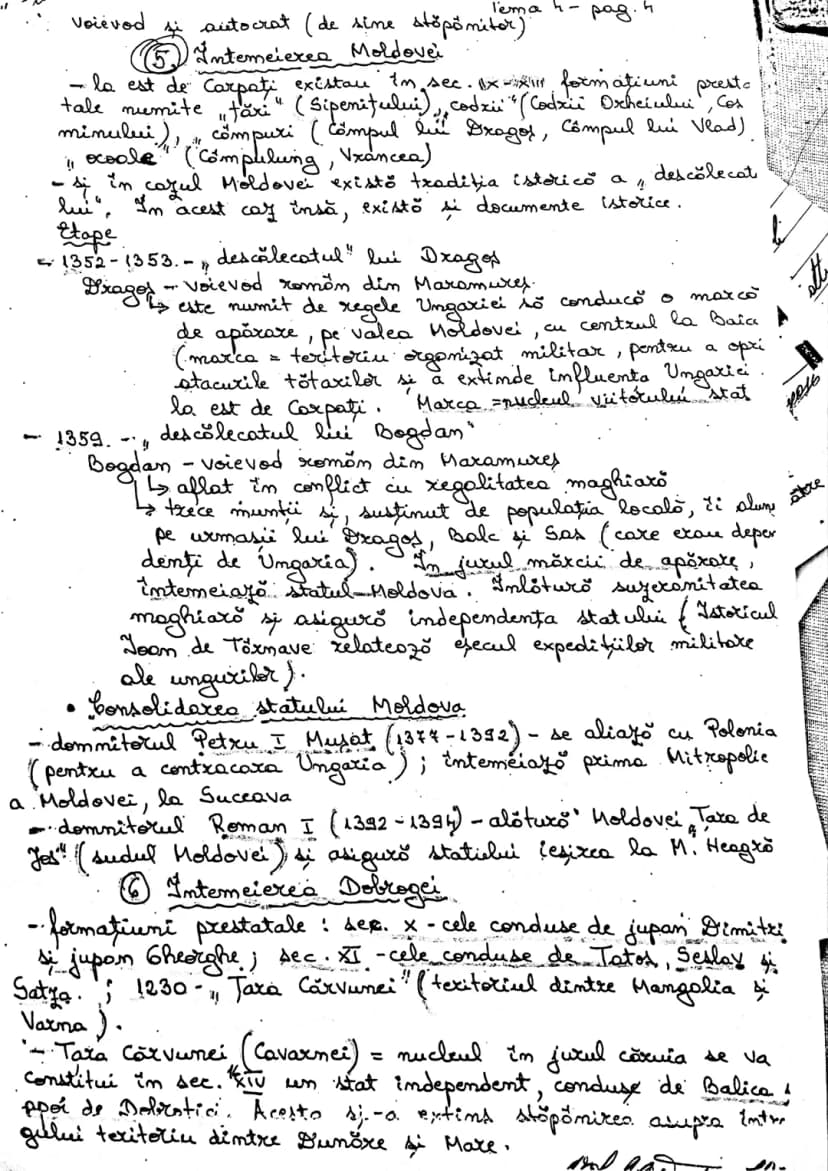 Tema 4 - pag. 4
Voievod și autocrat (de sine stăpânitor)
5. Întemeierea Moldovei
- la est de Carpați existau în sec. IX-XIII formațiuni presta
tale numite „țări" (Sipenițului), codrii" (Codrii Orheiului, Cos
minului), „câmpuri (Câmpul lui Dragoș, Câmpul lui Vlad)
„ocoale" (Câmpulung, Vrancea)
- și în cazul Moldovei există tradiția istorică a „descălecat
lui". În acest caz însă, există și documente istorice.
Etape
- 1352-1353. - „descălecatul" lui Dragoș
Dragoș - voievod român din Maramureș.
↳ este numit de regele Ungariei să conducă o marcă
de apărare, pe valea Moldovei, cu centrul la Baia
(marca = teritoriu organizat militar, pentru a opri
atacurile tătarilor și a extinde influența Ungariei
la est de Carpați. Marca = nucleul viitorului stat
- 1359. - „descălecatul lui Bogdan"
Bogdan - voievod român din Maramureș
↳ aflat în conflict cu regalitatea maghiară
↳ trece munții și, susținut de populația locală, îi alung
pe urmașii lui Dragoș, Balc și Sas (care erau depen
denți de Ungaria). În jurul mărcii de apărare,
întemeiază statul Moldova. Înlătură suzeranitatea
maghiară și asigură independența statului (Istoricul
Ioan de Târnave relatează eșecul expedițiilor militare
ale ungurilor).
• Consolidarea statului Moldova
- domnitorul Petru I Mușat (1377-1392) - se aliază cu Polonia
(pentru a contracara Ungaria); întemeiază prima Mitropolie
a Moldovei, la Suceava
- domnitorul Roman I (1392-1394) - alătură Moldovei „Țara de
Jos" (sudul Moldovei) și asigură statului ieșirea la M. Neagră
6 Întemeierea Dobrogei
- formațiuni prestatale: sec. X - cele conduse de jupan Dimitri
și jupan Gheorghe; sec. XI - cele conduse de Tatos, Seslav și
Satza. ; 1230 - „Țara Cărvunei" (teritoriul dintre Mangalia și
Varna).
- Țara Cărvunei (Cavarnei) = nucleul în jurul căruia se va
constitui în sec. XIV un stat independent, conduse de Balica,
ppoi de Dobrotici. Acesta și-a extins stăpânirea asupra într
gului teritoriu dintre Dunăre și Mare.